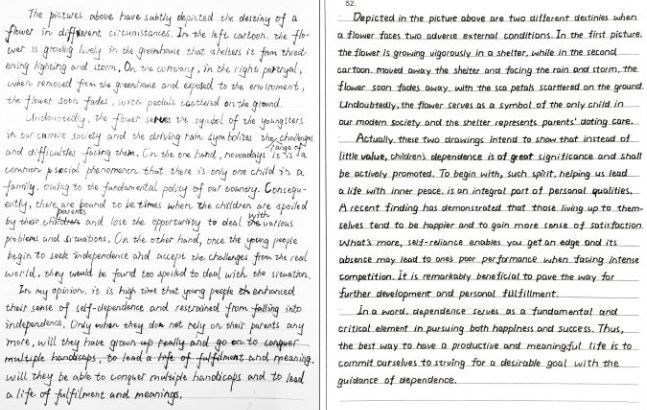 The pictures above have subtly depicted the destiny of a
flower in different circumstances. In the left cartoon, the flo-
wer is growing lively in the greenhouse that shelters it from threat-
ening lightning and storm. On the contrary, in the right portrayal,
when removed from the greenhouse and exposed to the environment,
the flower soon fades, with petals scattered on the ground.
Undoubtedly, the flower serves the symbol of the youngsters
in our current society and the driving rain symbolizes the challenges
and difficulties facing them. On the one hand, nowadays it is a
common phenomenon that there is only one child in a
family, owing to the fundamental policy of our country. Consequ-
ently, there are bound to be times when the children are spoiled
by their parents and lose the opportunity to deal with various
problems and situations. On the other hand, once the young people
begin to seek independence and accept the challenges from the real
world, they would be found too spoiled to deal with the situation.
In my opinion, it is high time that young people enhanced
their sense of self-dependence and restrained from falling into
independence. Only when they do not rely on their parents any
more, will they have grown up really and go on to conquer
multiple handicaps, to lead a life of fulfilment and meaning.
will they be able to conquer multiple handicaps and to lead
a life of fulfilment and meanings.
52.
Depicted in the picture above are two different destinies when
a flower faces two adverse external conditions. In the first picture,
the flower is growing vigorously in a shelter, while in the second
cartoon, moved away the shelter and facing the rain and storm, the
flower soon fades away, with the sea petals scarttered on the ground.
Undoubtedly, the flower serves as a symbol of the only child in
our modern society and the shelter represents parents' doting care.
Actually, these two drawings intend to show that instead of
little value, children's dependence is of great significance and shall
be actively promoted. To begin with, such spirit, helping us lead
a life with inner peace, is an integral part of personal qualities.
A recent finding has demonstrated that those living up to them-
selves tend to be happier and to gain more sense of satisfaction.
What's more, self-reliance enables you get an edge and its
absence may lead to one's poor performance when facing intense
competition. It is remarkably beneficial to pave the way for
further development and personal fulfillment.
In a word, dependence serves as a fundamental and
critical element in pursuing both happiness and success. Thus,
the best way to have a productive and meaningful life is to
commit ourselves to striving for a desirable goal with the
guidance of dependence.